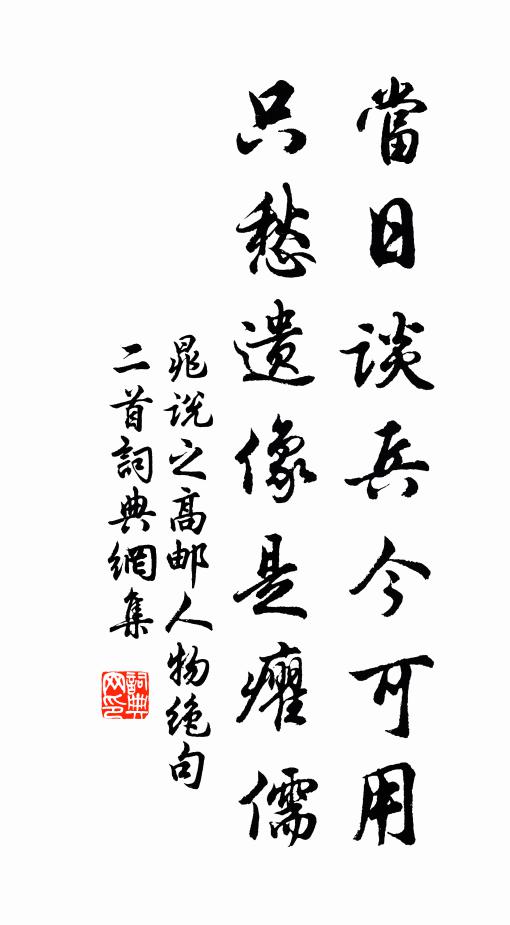 當日談兵今可用
只愁遺像是癯儒
晁说之高邮人物绝句
二首詞典網集
詞典网印